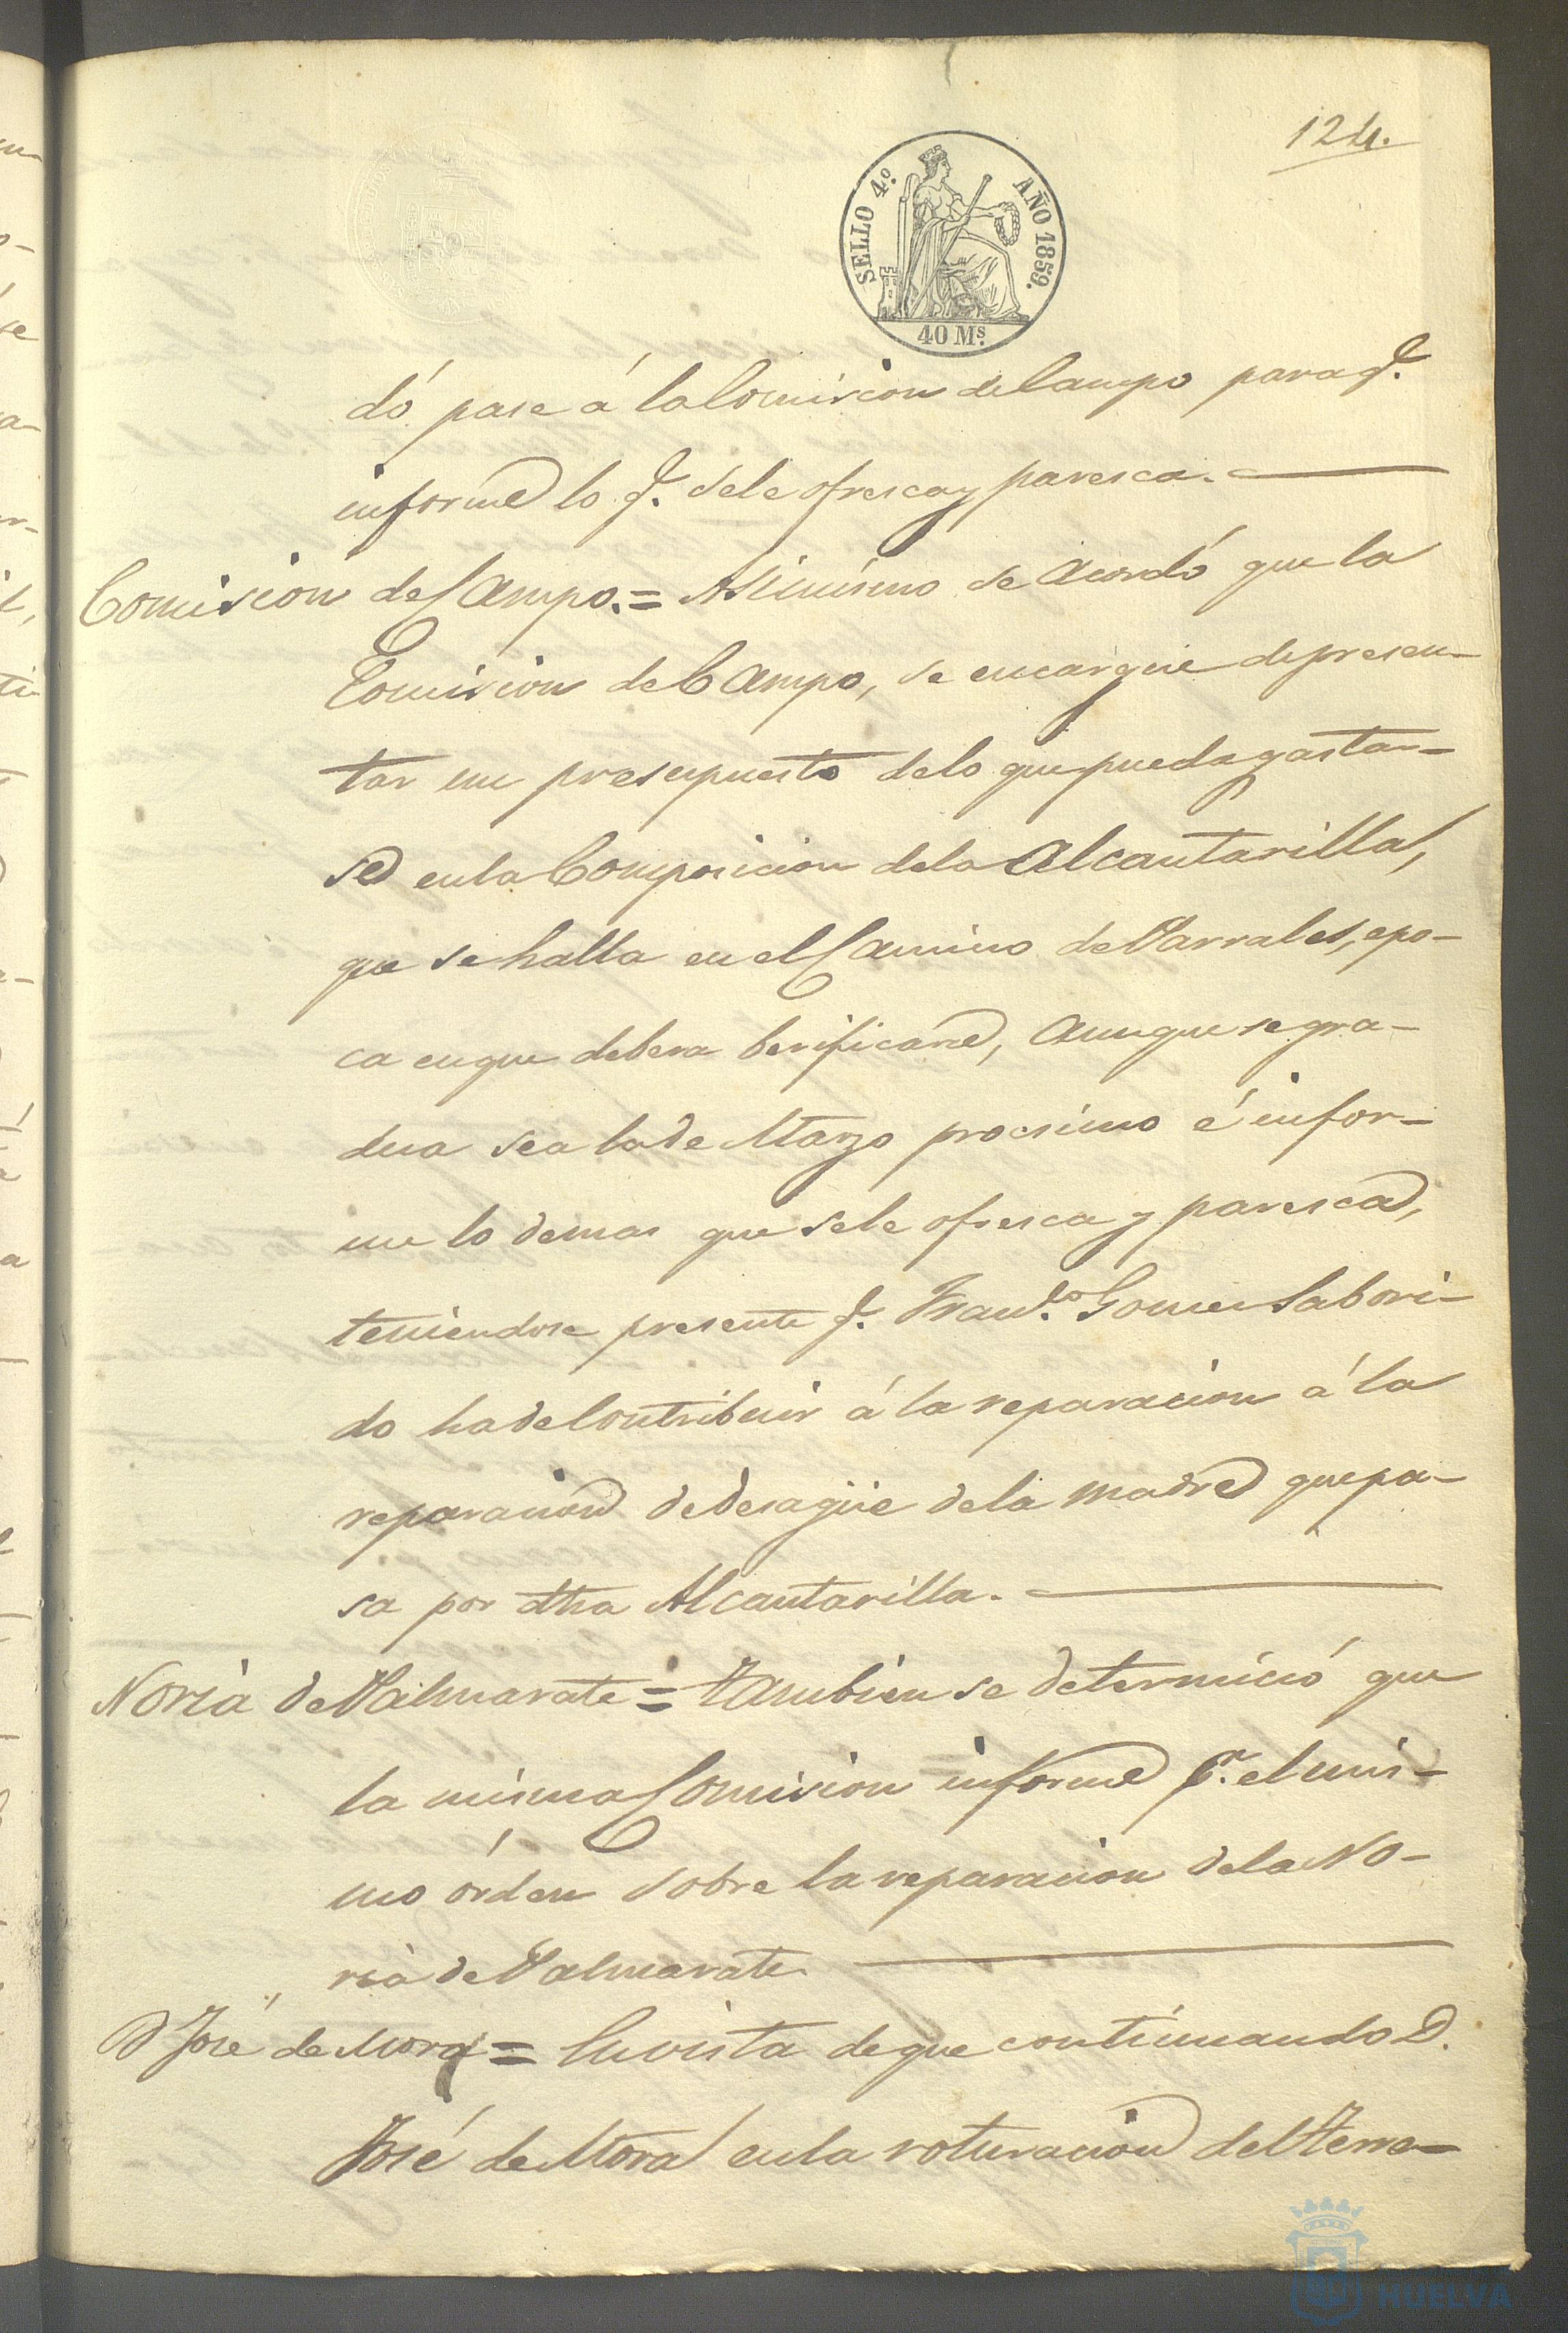 124.
SELLO 4.º AÑO 1859.
40 Ms.
dó pase á la Comision de Campo para q.e
informe lo q.e se le ofresca y paresca.
Comision de Campo. = Asimismo se acordó que la
Comision de Campo, se encargue de presen-
tar un presupuesto de lo que pueda gastar-
se en la Composicion de la Alcantarilla,
que se halla en el Camino de Parrales, epo-
ca en que debera berificarse, aunque se gra-
dua sea la de Marzo procsimo é infor-
me lo demas que se le ofresca y paresca,
teniendose presente q.e Fran.co Gomez Sabori-
do ha de Contribuir á la reparacion á la
reparacion de desagüe de la madre que pa-
sa por dha Alcantarilla.
Noria de Valmarate = Tambien se determinó que
la misma Comision informe p.r el mis-
mo órden sobre la reparacion de la No-
ria de Valmarate
D José de Mora = En vista de que continuando D.
José de Mora en la roturacion del Terre-
HUELVA